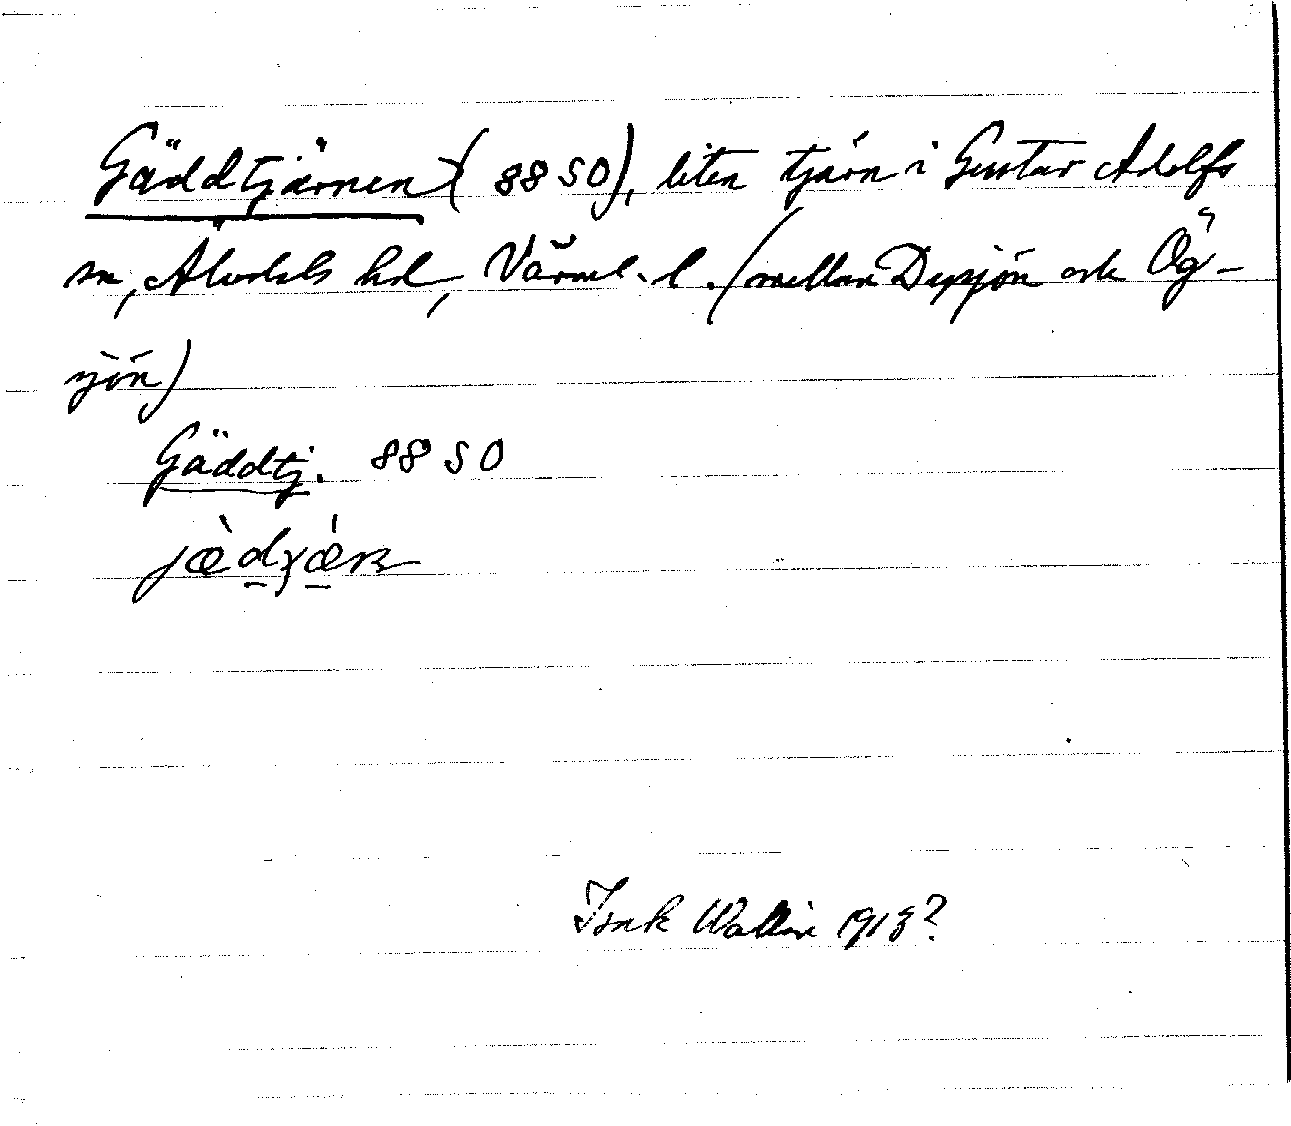 Gäddtjärnen (88 SO), liten tjärn i Gustav Adolfs
sn, Älvdals hd, Värml. l. (mellan Dypsjön och Ög-
sjön)
Gäddtj. 88 SO
Isak Wallin 1913?